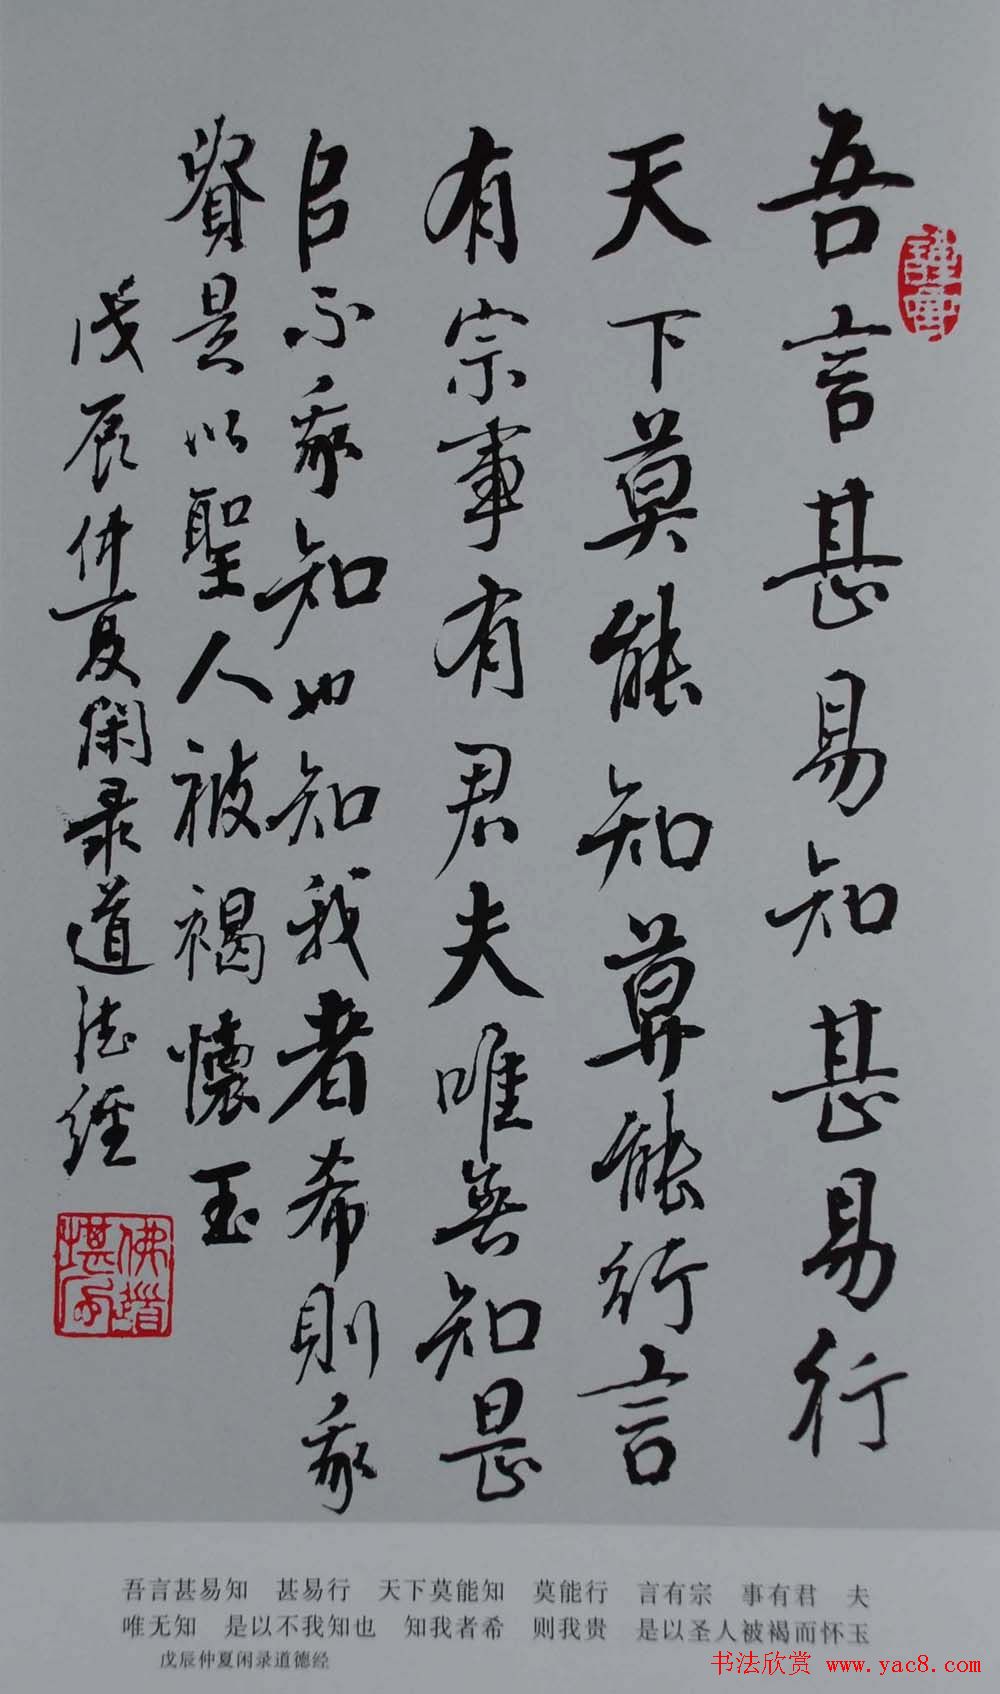 吾言甚易知甚易行
天下莫能知莫能行言
有宗事有君夫唯無知是
㠯不我知也知我者希則我
貴是以聖人被褐懷玉
戊辰仲夏閑录道德經
吾言甚易知　甚易行　天下莫能知　莫能行　言有宗　事有君　夫
唯无知　是以不我知也　知我者希　则我贵　是以圣人被褐而怀玉
戊辰仲夏闲录道德经
书法欣赏 www.yac8.com